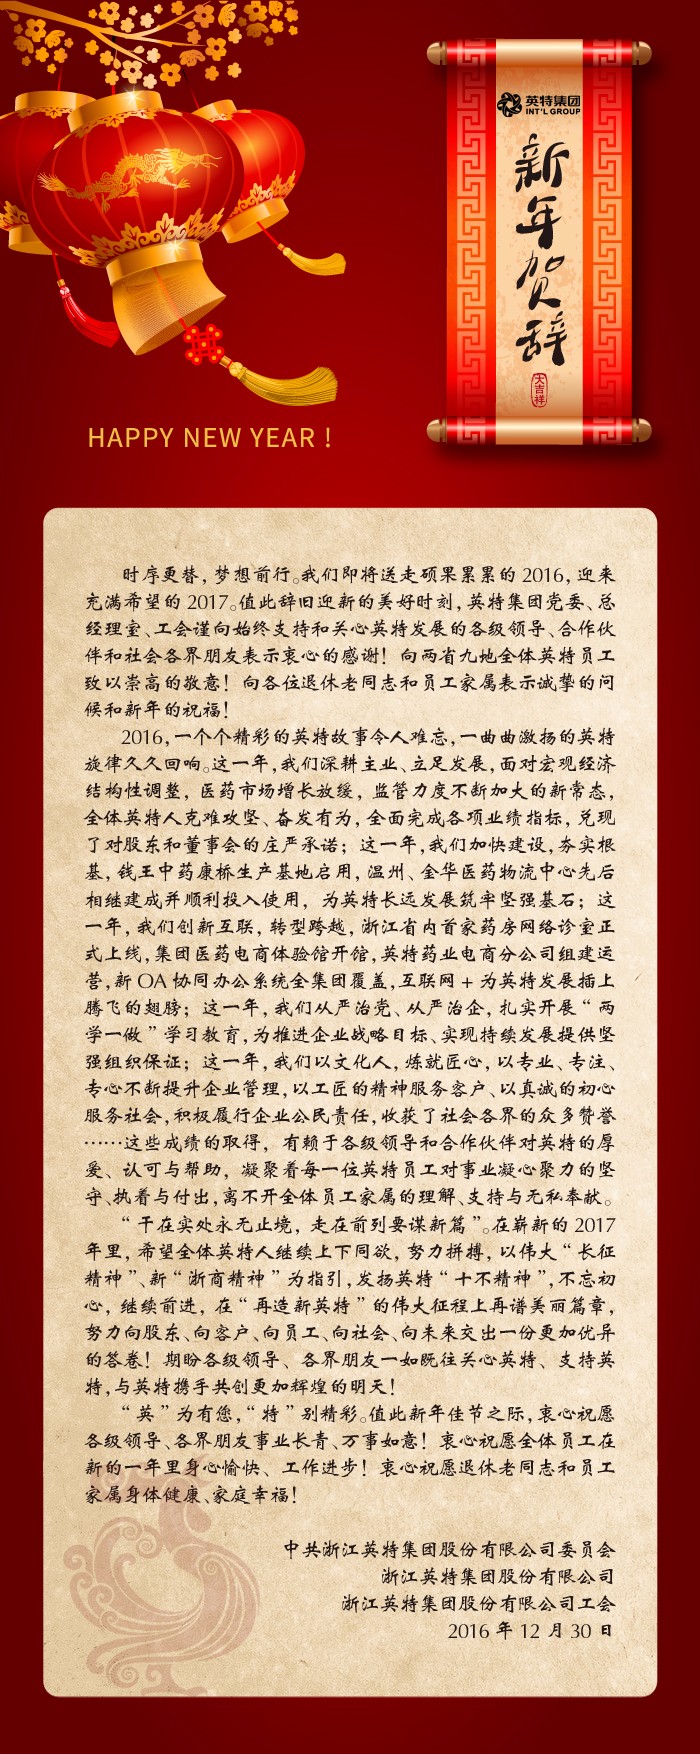 英特集团
INT'L GROUP
新年贺辞
大吉祥
HAPPY NEW YEAR !
时序更替，梦想前行。我们即将送走硕果累累的 2016，迎来
充满希望的 2017。值此辞旧迎新的美好时刻，英特集团党委、总
经理室、工会谨向始终支持和关心英特发展的各级领导、合作伙
伴和社会各界朋友表示衷心的感谢！向两省九地全体英特员工
致以崇高的敬意！向各位退休老同志和员工家属表示诚挚的问
候和新年的祝福！
2016，一个个精彩的英特故事令人难忘，一曲曲激扬的英特
旋律久久回响。这一年，我们深耕主业、立足发展，面对宏观经济
结构性调整，医药市场增长放缓，监管力度不断加大的新常态，
全体英特人克难攻坚、奋发有为，全面完成各项业绩指标，兑现
了对股东和董事会的庄严承诺；这一年，我们加快建设，夯实根
基，钱王中药康桥生产基地启用，温州、金华医药物流中心先后
相继建成并顺利投入使用，为英特长远发展筑牢坚强基石；这
一年，我们创新互联，转型跨越，浙江省内首家药房网络诊室正
式上线，集团医药电商体验馆开馆，英特药业电商分公司组建运
营，新 OA 协同办公系统全集团覆盖，互联网 + 为英特发展插上
腾飞的翅膀；这一年，我们从严治党、从严治企，扎实开展“两
学一做”学习教育，为推进企业战略目标、实现持续发展提供坚
强组织保证；这一年，我们以文化人，炼就匠心，以专业、专注、
专心不断提升企业管理，以工匠的精神服务客户、以真诚的初心
服务社会，积极履行企业公民责任，收获了社会各界的众多赞誉
……这些成绩的取得，有赖于各级领导和合作伙伴对英特的厚
爱、认可与帮助，凝聚着每一位英特员工对事业凝心聚力的坚
守、执着与付出，离不开全体员工家属的理解、支持与无私奉献。
“干在实处永无止境，走在前列要谋新篇”。在崭新的 2017
年里，希望全体英特人继续上下同欲，努力拼搏，以伟大“长征
精神”、新“浙商精神”为指引，发扬英特“十不精神”，不忘初
心，继续前进，在“再造新英特”的伟大征程上再谱美丽篇章，
努力向股东、向客户、向员工、向社会、向未来交出一份更加优异
的答卷！期盼各级领导、各界朋友一如既往关心英特、支持英
特，与英特携手共创更加辉煌的明天！
“英”为有您，“特”别精彩。值此新年佳节之际，衷心祝愿
各级领导、各界朋友事业长青、万事如意！衷心祝愿全体员工在
新的一年里身心愉快、工作进步！衷心祝愿退休老同志和员工
家属身体健康、家庭幸福！
中共浙江英特集团股份有限公司委员会
浙江英特集团股份有限公司
浙江英特集团股份有限公司工会
2016 年 12 月 30 日